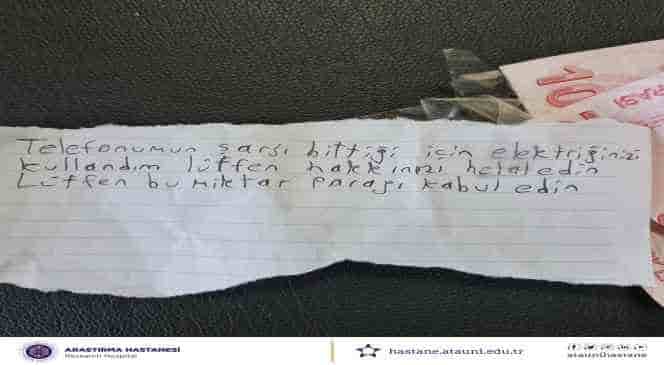 Telefonumun şarşı bittiği için elektriğinizi
kullandım lütfen hakkınızı helal edin
Lütfen bu miktar parayı kabul edin
10
ARAŞTIRMA HASTANESİ
Research Hospital
hastane.atauni.edu.tr
ataunihastane